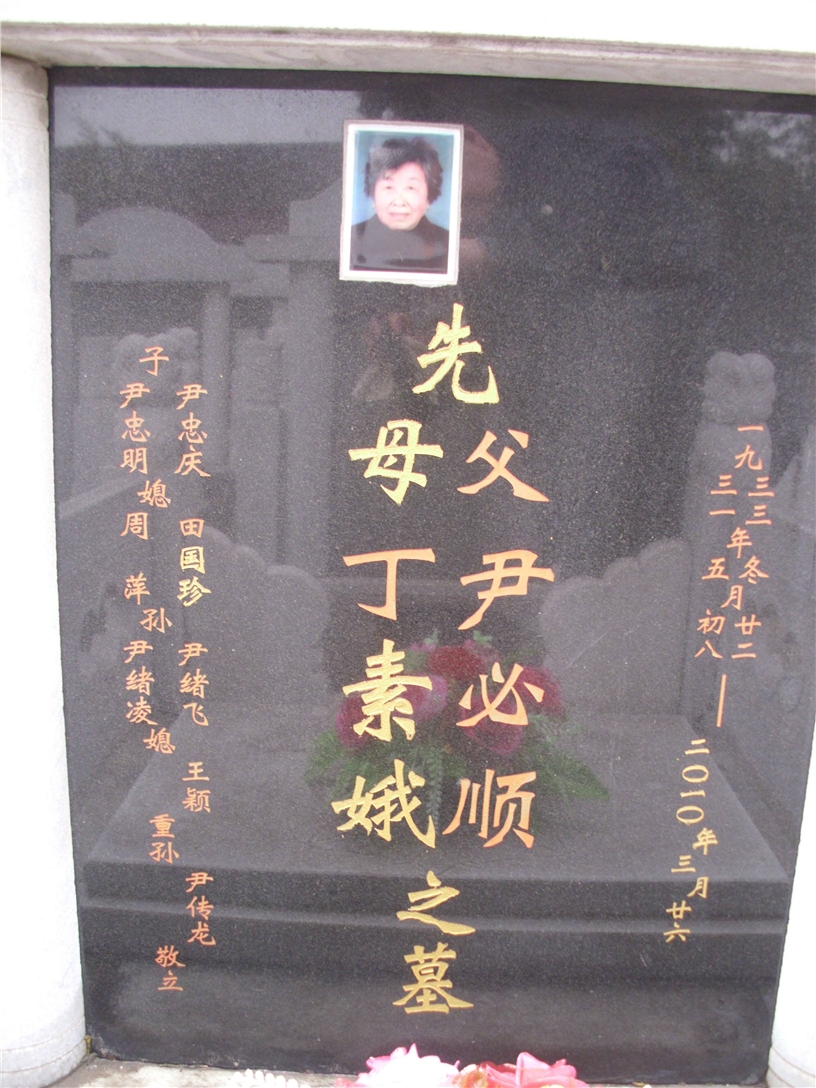 一九
三三
三一
年
冬
五
月
廿二
初八
—
二〇一〇年三月廿六
先
父尹必顺
母丁素娥
之墓
子
尹忠庆
尹忠明
媳
田国珍
周萍
孙
尹绪飞
尹绪凌
媳
王颖
重孙
尹传龙
敬立